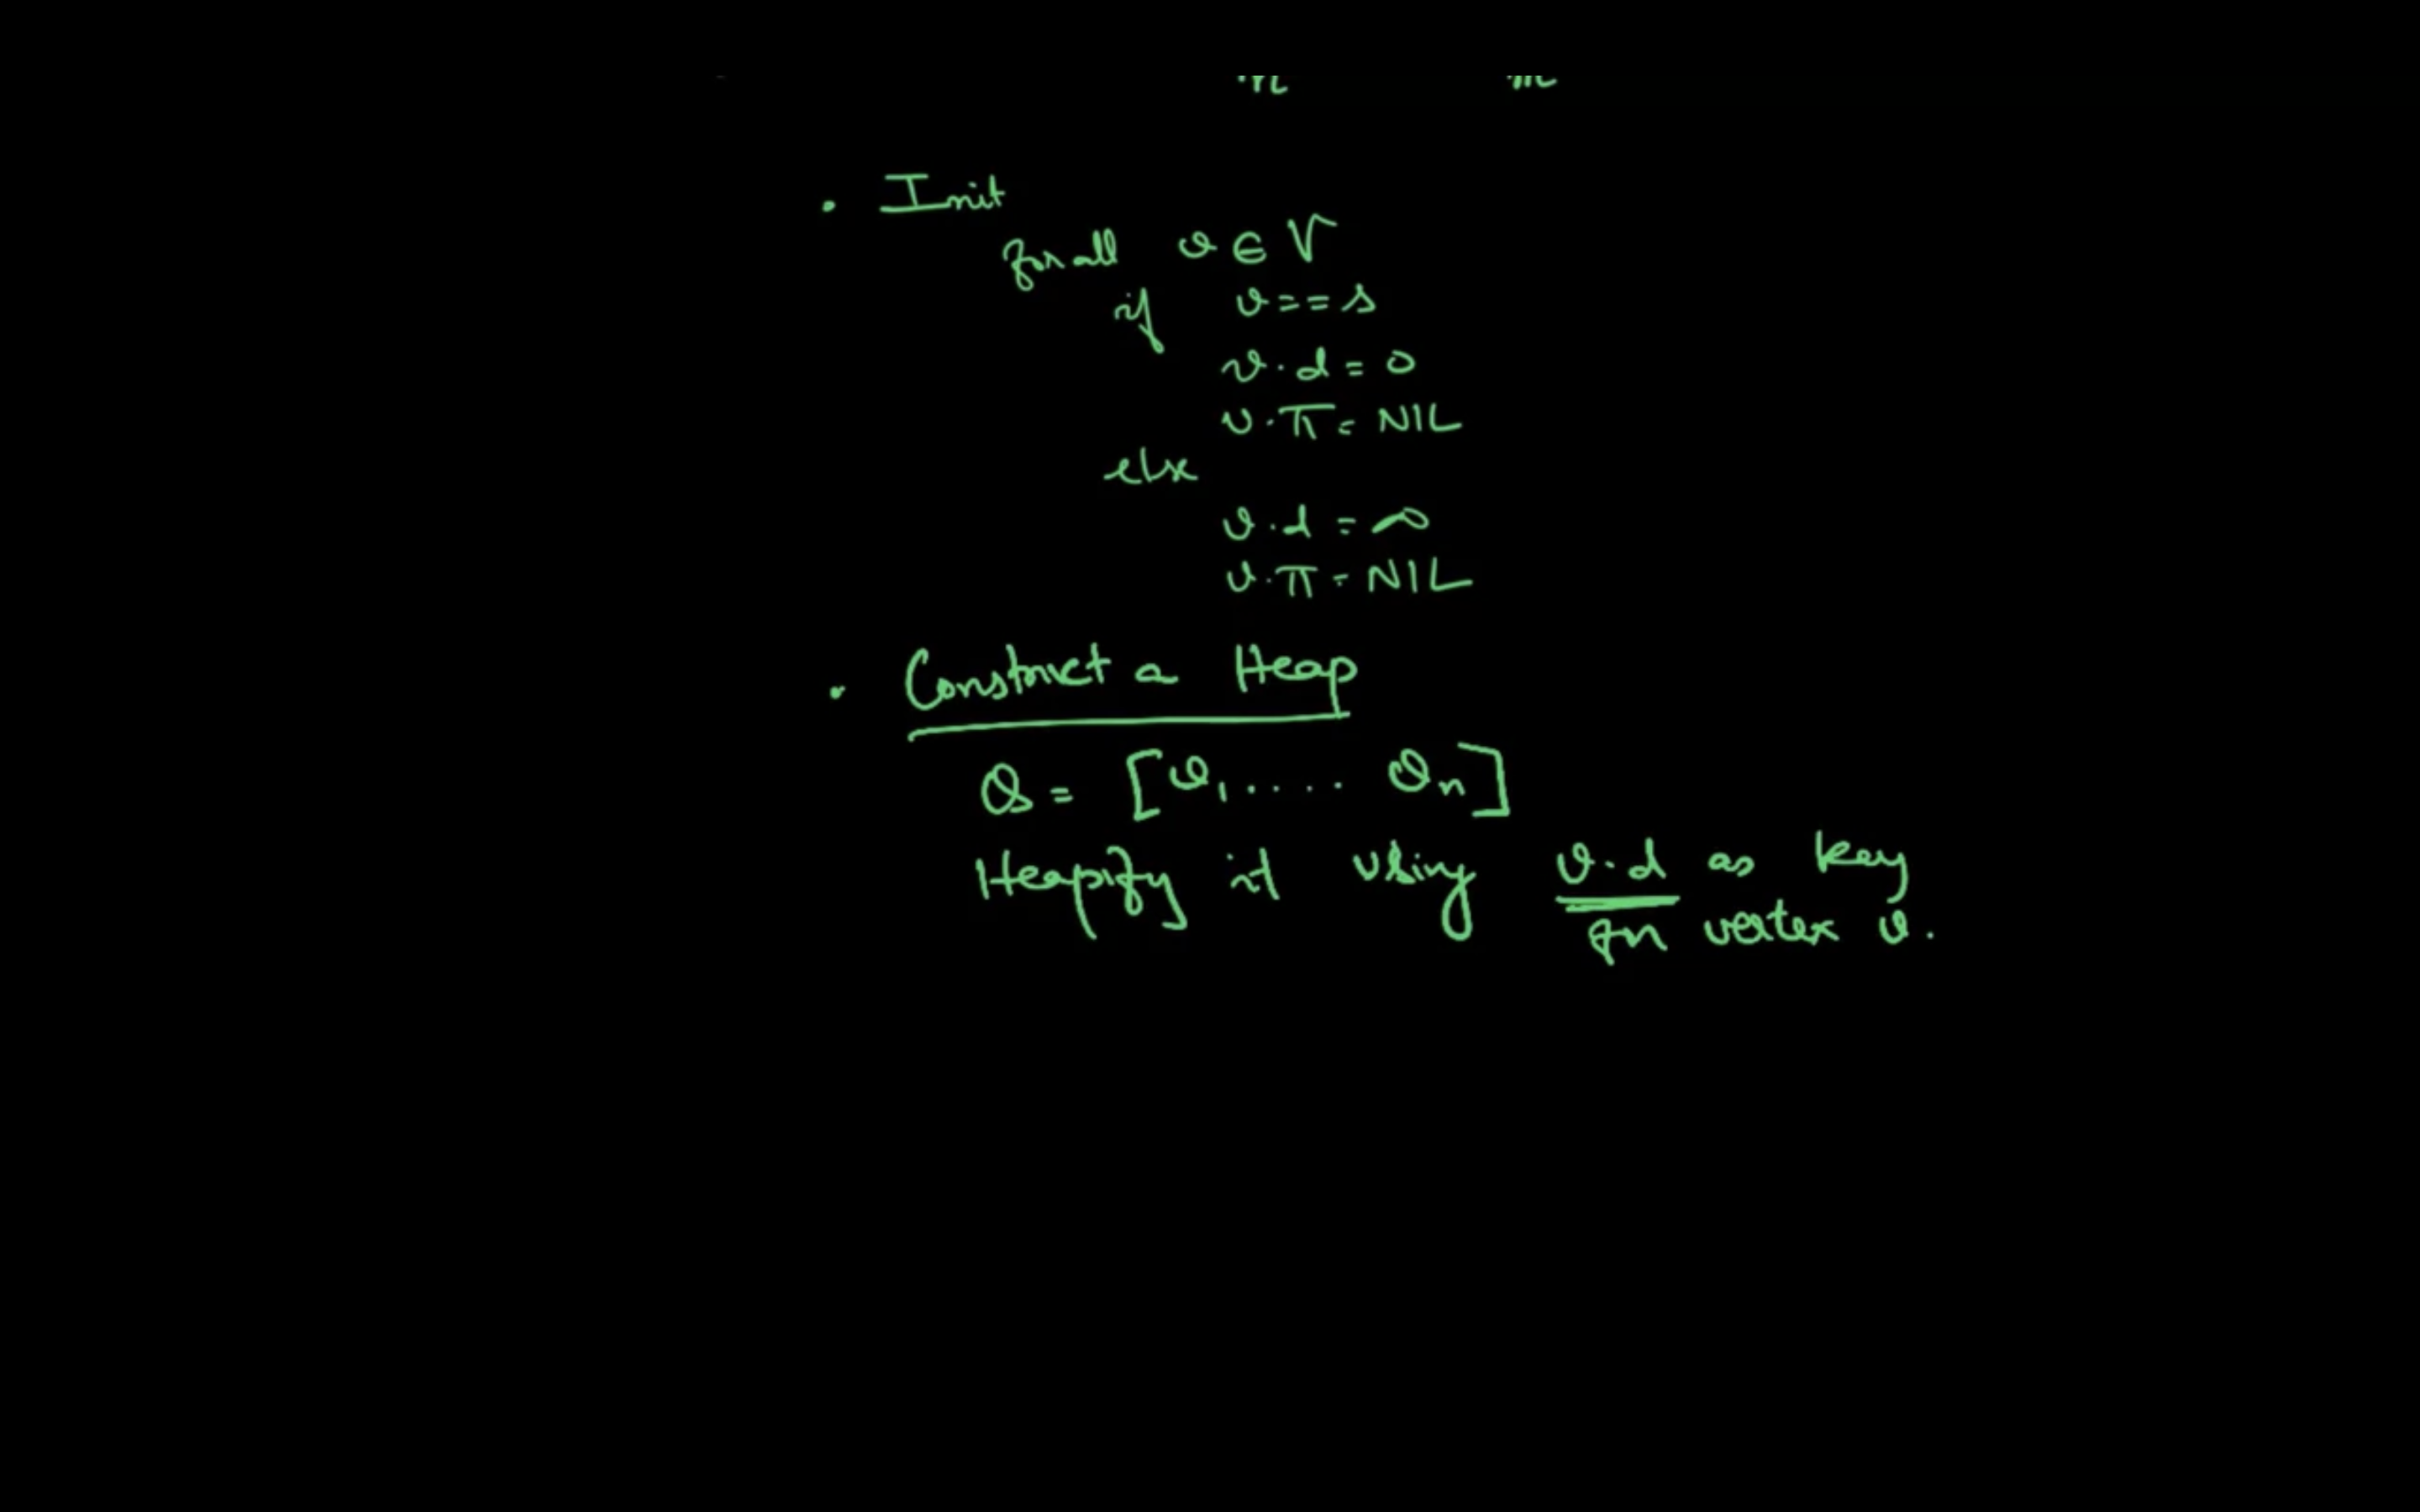 • Init
for all v ∈ V
if v == s
v.d = 0
v.π = NIL
else
v.d = ∞
v.π = NIL
• Construct a Heap
Q = [v₁ .... vₙ]
Heapify it using v.d as key
for vertex v.